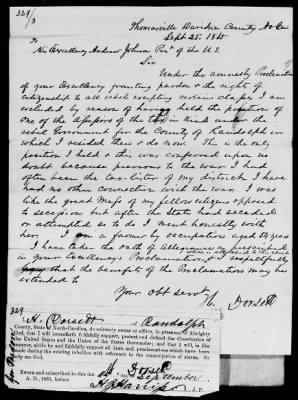 329
3
Thomasville Davidson County No Ca
Sept 25. 1865
To
His Excellency Andrew Johnson Pres of the U.S.
Sir
Under the amnesty Proclamation
of your Excellency granting pardon & the rights of
citizenship to all rebels excepting certain classes, I am
excluded by reason of having held the position of
one of the assessors of the tax in kind under the
rebel Government for the County of Randolph in
which I resided then & do now. This is the only
position I held & this was conferred upon me
doubt because previous to the war I had
often been the tax-lister of my district. I have
had no other connection with the war. I was
like the great mass of my fellow citizens opposed
to secession but after the State had seceded
or attempted so to do I went honestly with
her. I am a farmer by occupation aged 54 years
I have taken the oath of Allegiance as prescribed
in your Excellency's Proclamation & respectfully
that the benefits of the Proclamation may be
extended to
Your obt servt
H. Dorsett
329
I, H. Dorsett of Randolph
County, State of North-Carolina, do solemnly swear or affirm, in presence of Almighty
God, that I will henceforth faithfully support, protect and defend the Constitution of
the United States and the Union of the States thereunder; and that I will, in like
manner, abide by and faithfully support all laws and proclamations which have been
made during the existing rebellion with reference to the emancipation of slaves. So
help me God.
H. Dorsett
Sworn and subscribed to this the day of September
A. D., 1865, before
J. P.